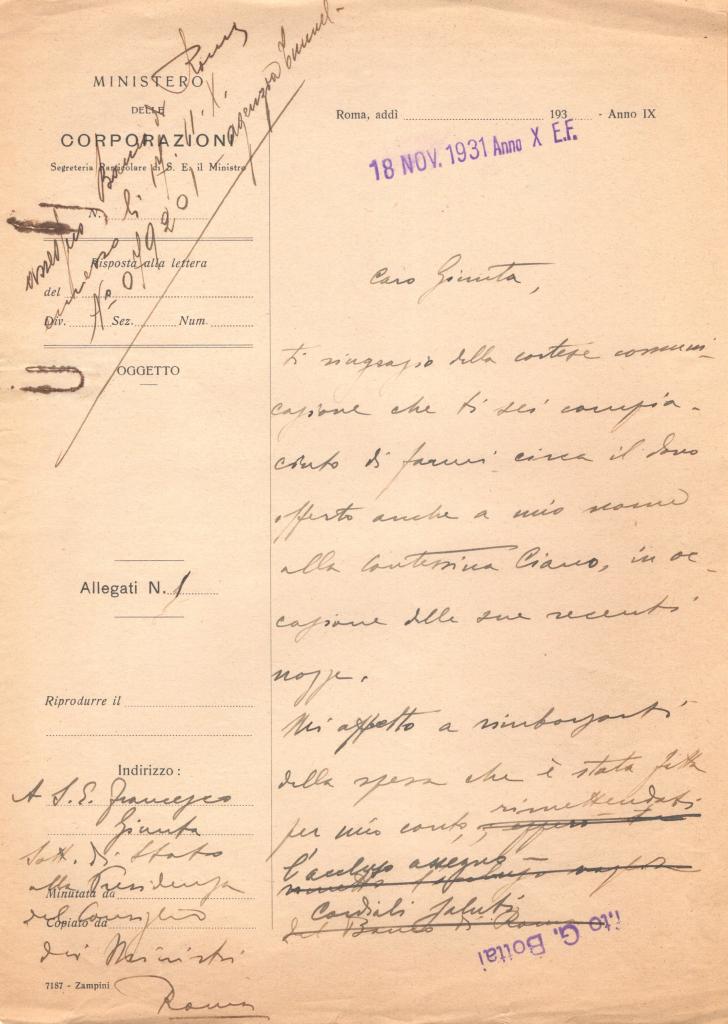 MINISTERO
DELLE
CORPORAZIONI
Segreteria Particolare di S. E. il Ministro
N.
assegno Banco di Roma
emesso li 17. 11. X.
N° 079201 - agenzia
Risposta alla lettera
del
Div. Sez. Num.
OGGETTO
Allegati N. 1
Riprodurre il
Indirizzo:
A S. E. Francesco
Giunta
Sott. di Stato
alla Presidenza
Minutata da
del Consiglio
Copiato da
dei Ministri
Roma
7187 - Zampini
Roma, addì 193 - Anno IX
18 NOV. 1931 Anno X E.F.
Caro Giunta,
ti ringrazio della cortese comuni-
cazione che ti sei compia-
ciuto di farmi circa il dono
offerto anche a mio nome
alla Contessina Ciano, in oc-
casione delle sue recenti
nozze.
Mi affretto a rimborsarti
della spesa che è stata fatta
per mio conto, rimettendoti
l'accluso assegno
Cordiali saluti
del Banco di Roma
f.to G. Bottai